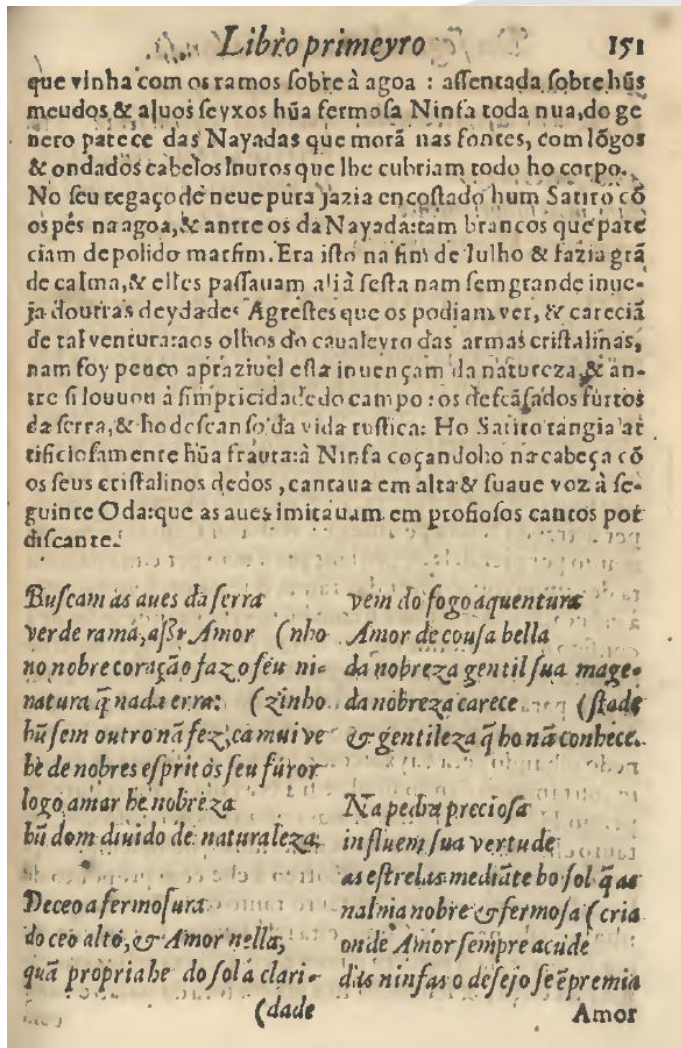 Libro primeyro 151
que vinha com os ramos ſobre à agoa : aſſentada ſobre hũs
meudos & aluos ſeyxos hũa fermoſa Ninfa toda nua, do ge
nero parece das Nayadas que morã nas fontes, com lõgos
& ondados cabelos louros que lhe cubriam todo ho corpo.
No ſeu regaço de neue pura jazia encoſtado hum Satiro cõ
os pés na agoa, & antre os da Nayada: tam brancos que pare
ciam de polido marfim. Era iſto na fim de Iulho & fazia grã
de calma, & elles paſſauam ali à ſeſta nam ſem grande inue-
ja doutras deydades Agreſtes que os podiam ver, & careciã
de tal ventura: aos olhos do caualeyro das armas criſtalinas,
nam foy pouco apraziuel eſta inuençam da natureza, & an-
tre ſi louuou à ſimpricidade do campo : os deſcãſados furtos
da ſerra, & ho deſcanſo da vida ruſtica: Ho Satiro tangia ar
tificioſamente hũa frauta: à Ninfa coçandoho na cabeça cõ
os ſeus criſtalinos dedos, cantaua em alta & ſuaue voz à ſe-
guinte Oda: que as aues imitauam em profioſos cantos por
diſcante.
Buſcam as aues da ſerra
verde rama, aſſi Amor (nho
no nobre coração faz o ſeu ni-
natura q̃ nada erra: (zinho
hũ ſem outro nã fez, ca mui ve
he de nobres eſpritos ſeu furor
logo amar he nobreza
hũ dom diuido de naturaleza.
Deceo a fermoſura
do ceo alto, & Amor nella,
quã propria he do ſol a clari-
(dade
vem do fogo a quentura
Amor de couſa bella
da nobreza gentil ſua mage-
da nobreza carece (ſtade
& gentileza q̃ ho nã conhece.
Na pedra precioſa
influem ſua vertude
as eſtrelas mediãte ho ſol q̃ as
nalma nobre & fermoſa (cria
onde Amor ſempre acude
das ninfas o deſejo ſe ẽpremia
Amor